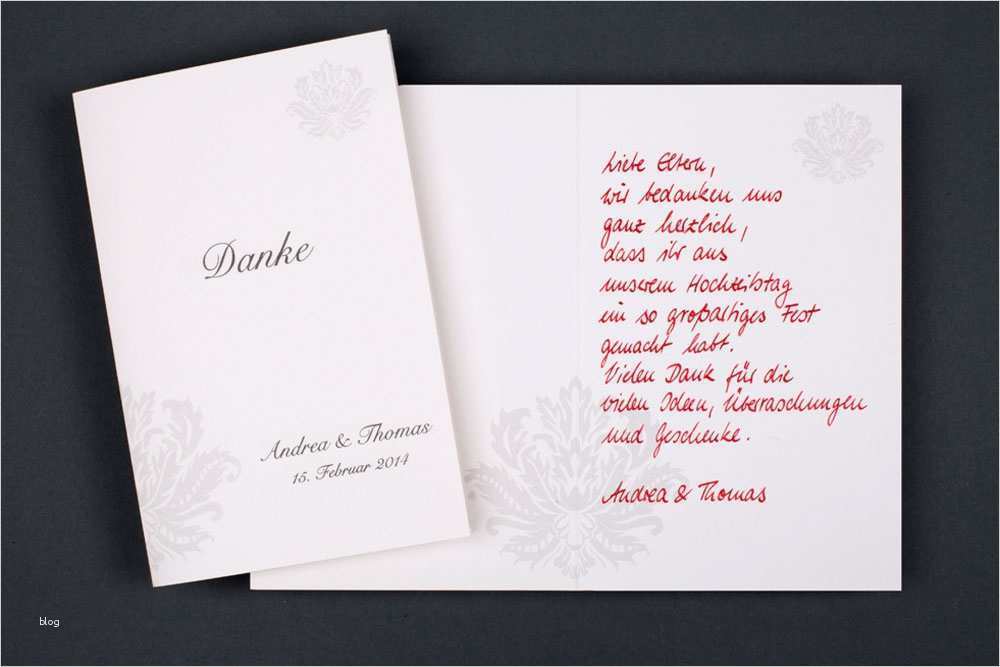 Danke
Andrea & Thomas
15. Februar 2014
Liebe Eltern,
wir bedanken uns
ganz herzlich,
dass ihr aus
unserem Hochzeitstag
ein so großartiges Fest
gemacht habt.
Vielen Dank für die
vielen Ideen, Überraschungen
und Geschenke.
Andrea & Thomas
blog